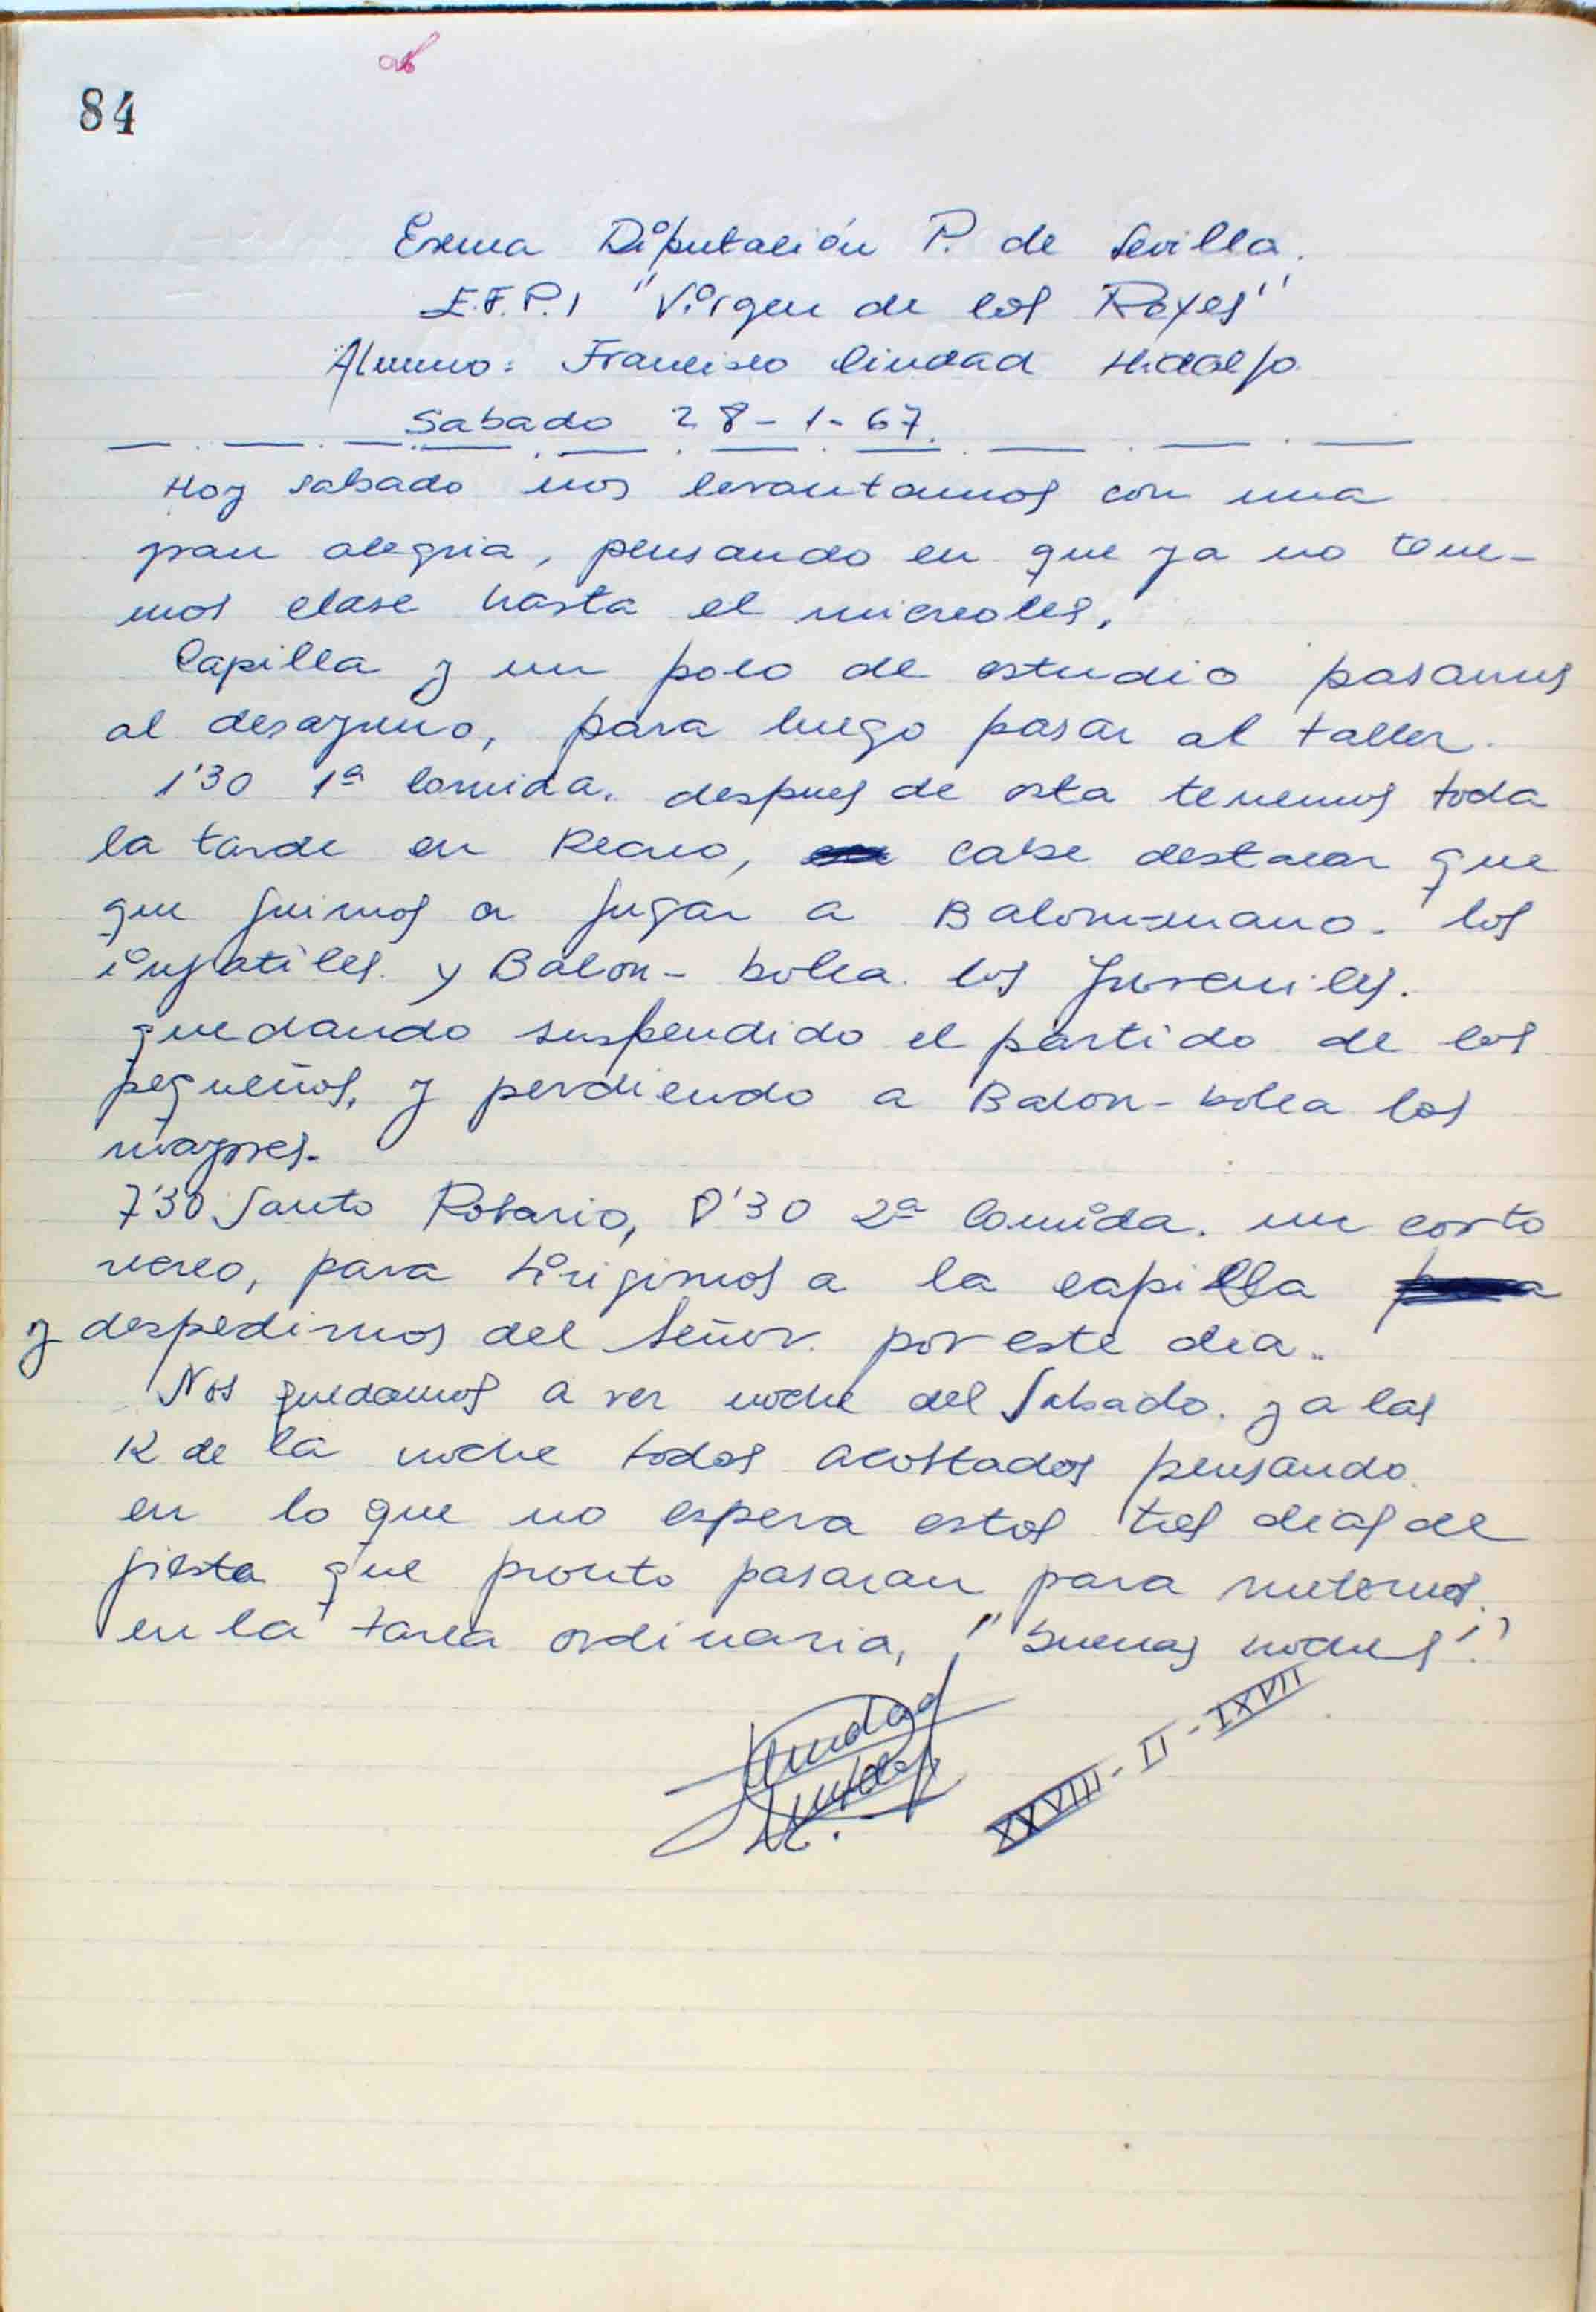 84
Exma Diputación P. de Sevilla.
E.F.P.I "Virgen de los Reyes"
Alumno: Francisco Ciudad Hidalgo
Sabado 28-1-67.
Hoy sabado nos levantamos con una
gran alegria, pensando en que ya no tene-
mos clase hasta el miercoles.
Capilla y un poco de estudio pasamos
al desayuno, para luego pasar al taller.
1'30 1ª Comida. despues de esta tenemos toda
la tarde en Recreo, cabe destacar que
que fuimos a jugar a Balon-mano. los
infatiles. y Balon-bolea. los juveniles.
quedando suspendido el partido de los
pequeños, y perdiendo a Balon-bolea los
mayores.
7'30 Santo Rosario, 8'30 2ª Comida. un corto
recreo, para dirigirnos a la capilla
y despedirnos del Señor. por este dia..
Nos quedamos a ver noche del Sabado. y a las
12 de la noche todos acostados pensando
en lo que no espera estos tres dias de
fiesta que pronto pasaran para meternos.
en la tarea ordinaria, ¡"buenas noches"!
Ciudad
XXVIII - II - IXVII